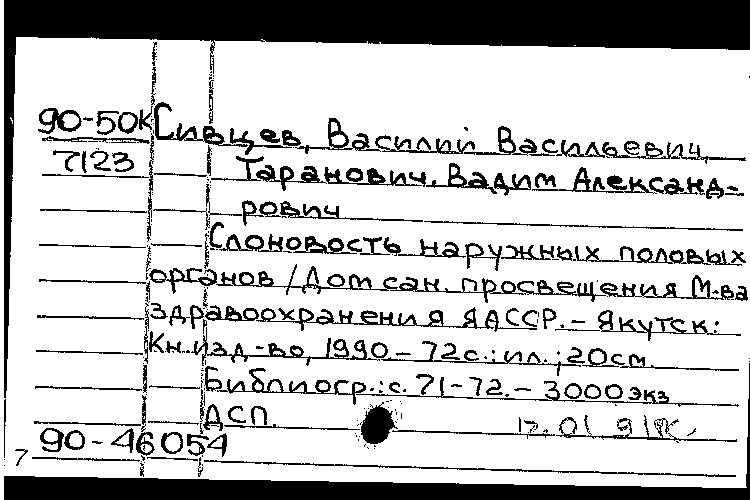 90-50к Сивцев, Василий Васильевич,
7123 Таранович, Вадим Александ-
рович
Слоновость наружных половых
органов / Дом сан. просвещения М-ва
здравоохранения ЯАССР. – Якутск:
Кн. изд-во, 1990 – 72с.: ил.; 20см.
Библиогр.: с. 71-72. – 3000 экз
ДСП.
90-46054
7